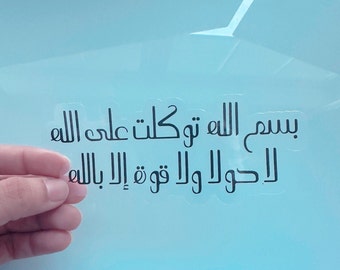 بسم الله توكلت على الله
لا حولا ولا قوة إلا بالله